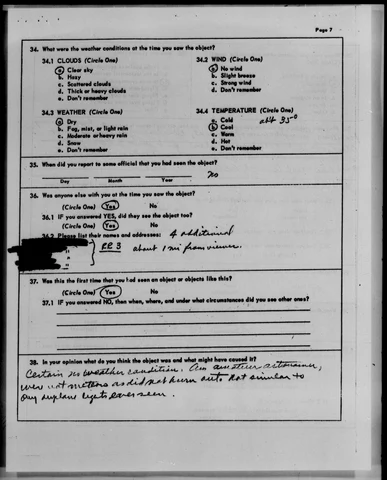 Page 7
34. What were the weather conditions at the time you saw the object?
34.1 CLOUDS (Circle One)
a. Clear sky
b. Hazy
c. Scattered clouds
d. Thick or heavy clouds
e. Don't remember
34.2 WIND (Circle One)
a. No wind
b. Slight breeze
c. Strong wind
d. Don't remember
34.3 WEATHER (Circle One)
a. Dry
b. Fog, mist, or light rain
c. Moderate or heavy rain
d. Snow
e. Don't remember
34.4 TEMPERATURE (Circle One)
a. Cold abt 35°
b. Cool
c. Warm
d. Hot
e. Don't remember
35. When did you report to some official that you had seen the object?
no
Day Month Year
36. Was anyone else with you at the time you saw the object?
(Circle One) Yes No
36.1 IF you answered YES, did they see the object too?
(Circle One) Yes No
36.2 Please list their names and addresses: 4 additional
RR 3 about 1 mi from viewer.
37. Was this the first time that you had seen an object or objects like this?
(Circle One) Yes No
37.1 IF you answered NO, then when, where, and under what circumstances did you see other ones?
38. In your opinion what do you think the object was and what might have caused it?
Certain no weather condition. Am amateur astronomer,
were not meteors as did not burn out. Not similar to
any airplane lights ever seen.